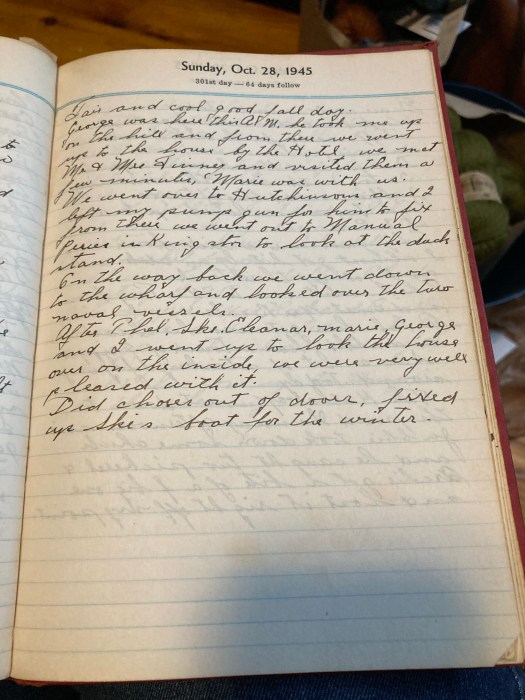 Sunday, Oct. 28, 1945
301st day — 64 days follow
Fair and cool good fall day.
George was here this A.M. he took me up
on the hill and from there we went
up to the house by the Hotel we met
Mr & Mrs Finney and visited them a
few minutes, Marie was with us.
We went over to Hutchinsons and I
left my pump gun for him to fix
from there we went out to Manual
Peries in Kingston to look at the duck
stand.
On the way back we went down
to the wharf and looked over the two
naval vessels.
After Phel, Ske. Eleanar, marie, George
and I went up to look the house
over on the inside, we were very well
pleased with it.
Did chores out of doors, fixed
up Ske's boat for the winter.